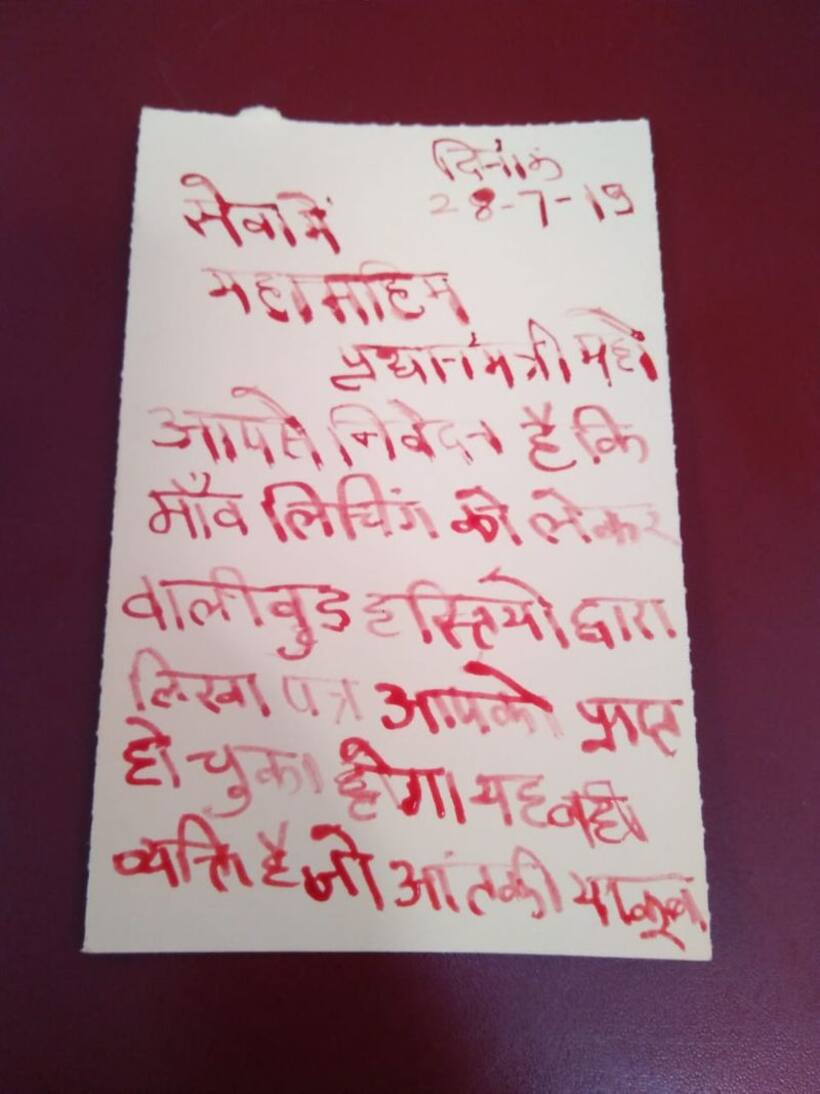 दिनांक
28-7-19
सेवा में
महामहिम
प्रधानमंत्री महो
आपसे निवेदन है कि
मॉब लिंचिंग को लेकर
वालीवुड हस्तियो द्वारा
लिखा पत्र आपको प्राप्त
हो चुका होगा यह वही
व्यक्ति है जो आंतकी याकूब